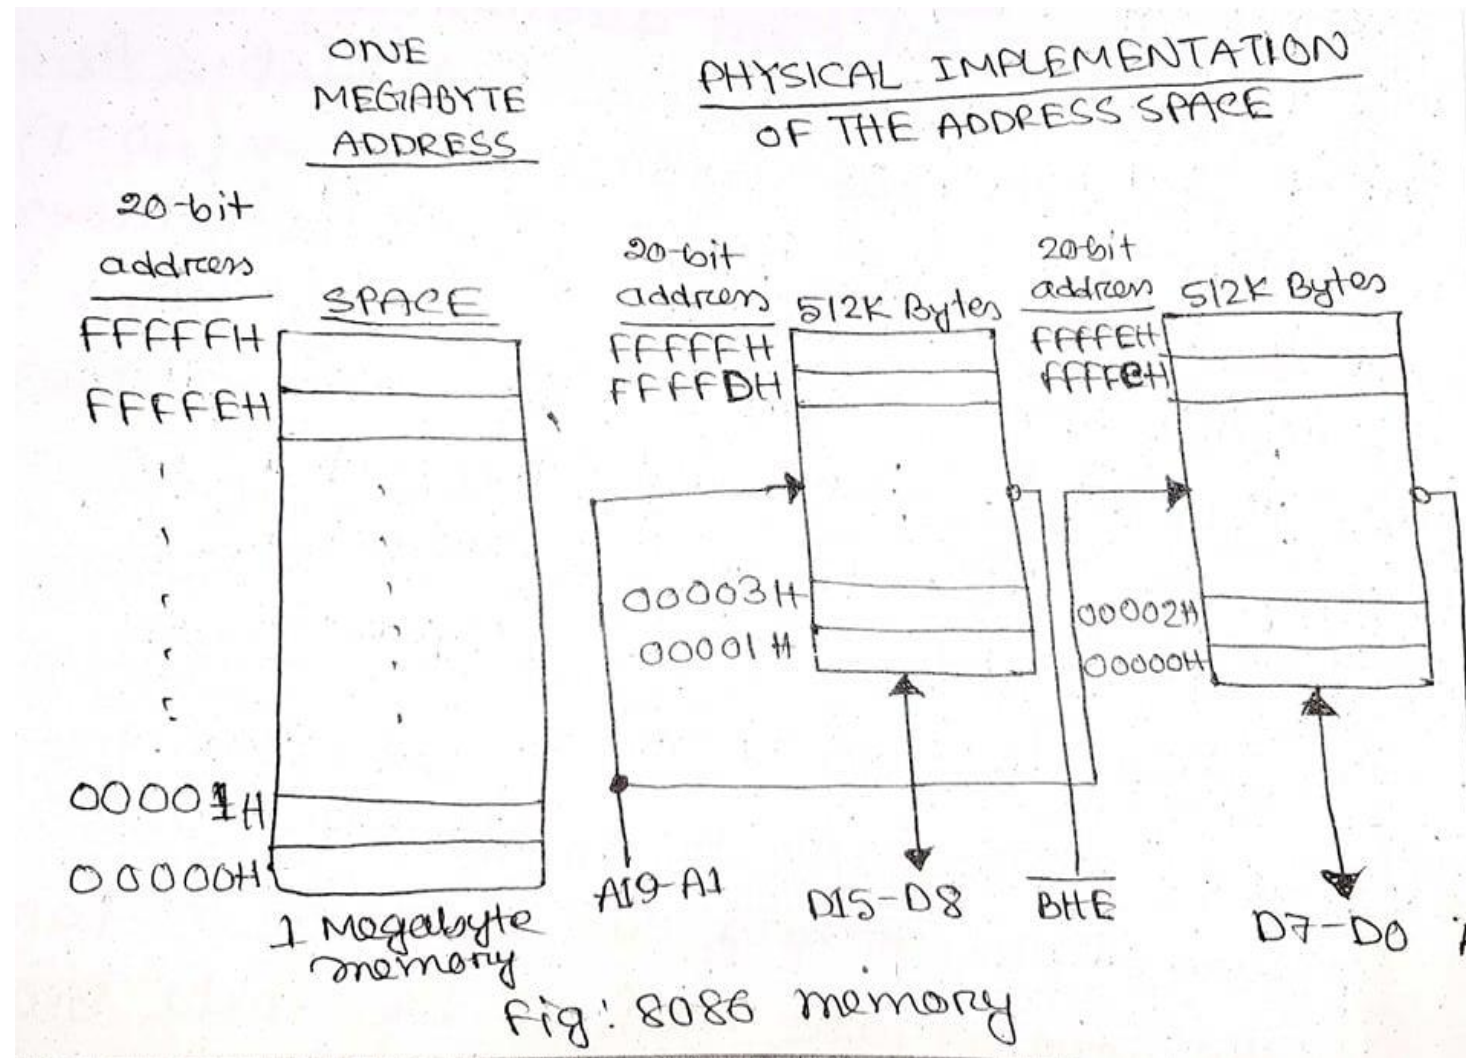 ONE
MEGABYTE
ADDRESS
PHYSICAL IMPLEMENTATION
OF THE ADDRESS SPACE
20-bit
address
SPACE
FFFFFH
FFFFEH
00001H
00000H
1 Megabyte
memory
20-bit
address
512K Bytes
FFFFFH
FFFFDH
00003H
00001H
20-bit
address
512K Bytes
FFFFEH
FFFFCH
00002H
00000H
A19-A1
D15-D8
BHE
D7-D0
Fig: 8086 memory